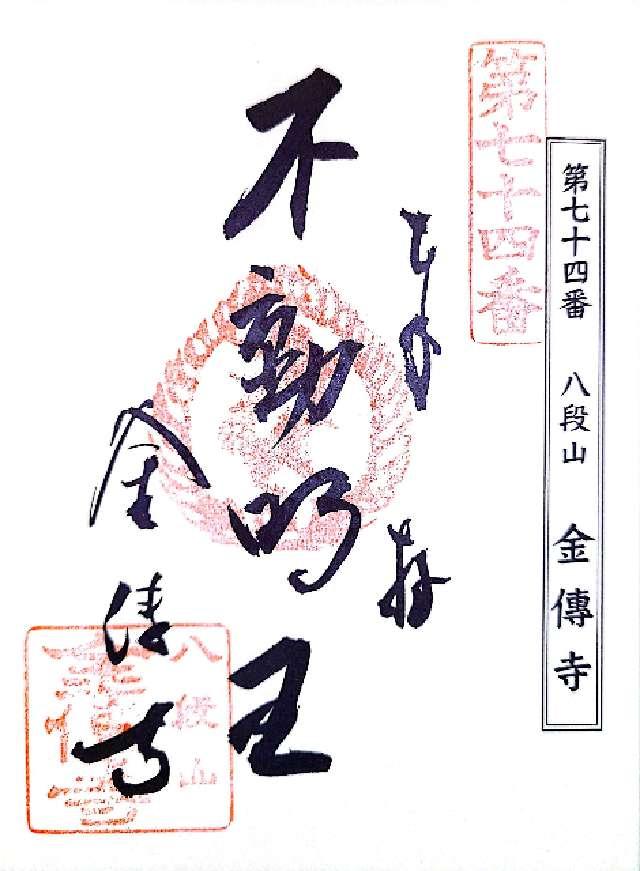 第七十四番 八段山 金傳寺
第七十四番
奉拝
不動明王
金傳寺
八段山
金傳寺